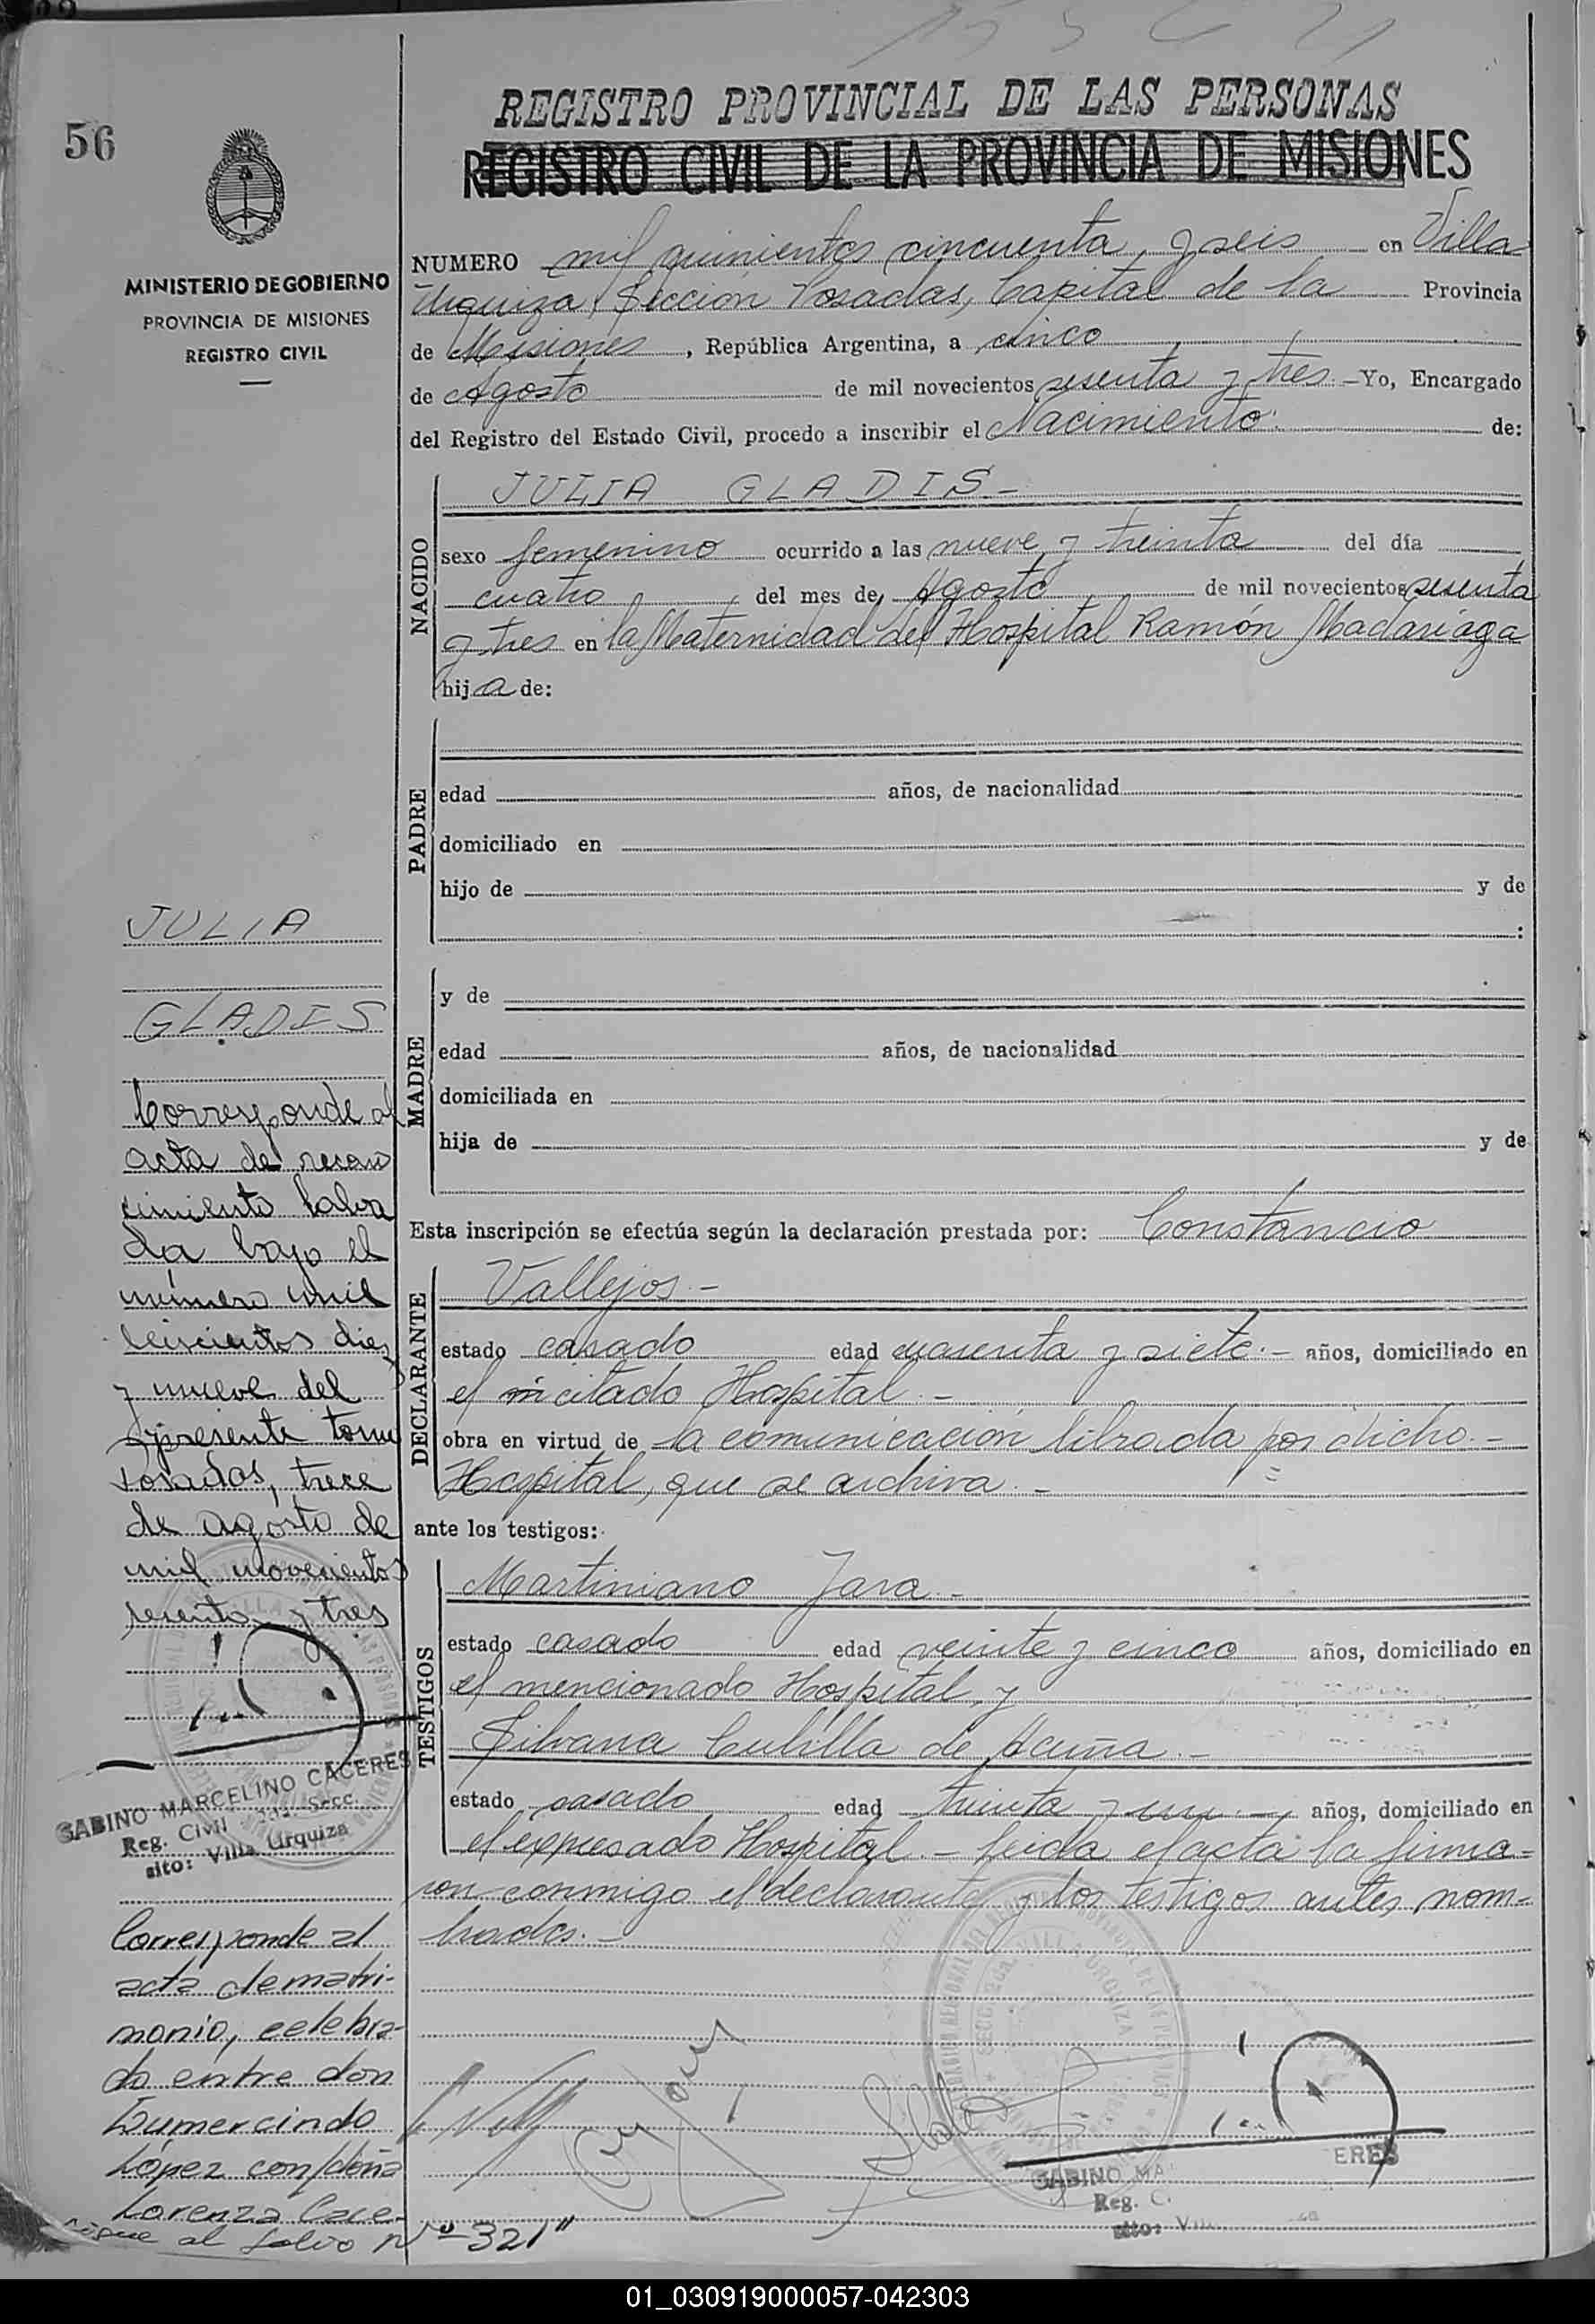 56
REGISTRO PROVINCIAL DE LAS PERSONAS
REGISTRO CIVIL DE LA PROVINCIA DE MISIONES
MINISTERIO DE GOBIERNO
PROVINCIA DE MISIONES
REGISTRO CIVIL
NUMERO mil quinientos cincuenta y seis en Villa
Urquiza, Sección Posadas, Capital de la Provincia
de Misiones, República Argentina, a cinco
de Agosto de mil novecientos sesenta y tres.- Yo, Encargado
del Registro del Estado Civil, procedo a inscribir el Nacimiento. de:
NACIDO
JULIA GLADIS.-
sexo femenino ocurrido a las nueve y treinta del día
cuatro del mes de Agosto de mil novecientos sesenta
y tres en la Maternidad del Hospital Ramón Madariaga
hija de:
PADRE
edad años, de nacionalidad
domiciliado en
hijo de y de
:
MADRE
y de
edad años, de nacionalidad
domiciliada en
hija de y de
Esta inscripción se efectúa según la declaración prestada por: Constancio
DECLARANTE
Vallejos.-
estado casado edad cuarenta y siete.- años, domiciliado en
el citado Hospital.-
obra en virtud de la comunicación librada por dicho.-
Hospital, que se archiva.-
ante los testigos:
TESTIGOS
Martiniano Jara.-
estado casado edad veinte y cinco años, domiciliado en
el mencionado Hospital, y
Silvana Cubilla de Acuña.-
estado casado edad treinta y un.- años, domiciliado en
el expresado Hospital.- Leida el acta la firma=
ron conmigo el declarante y los testigos antes nom=
brados.-
JULIA
GLADIS
Corresponde al
acta de recono
cimiento labra
da bajo el
número mil
seiscientos diez
y nueve del
presente tomo
Posadas, trece
de agosto de
mil novecientos
sesenta y tres
GABINO MARCELINO CACERES
Reg. Civil 2da. Secc.
sito: Villa Urquiza
Corresponde al
acta de matri-
monio, celebra-
do entre don
Gumercindo
López con doña
Lorenza Cace-
sigue al folio Nº 321"
GABINO MA ERES
Reg. C.
sito: Vi
01_030919000057-042303